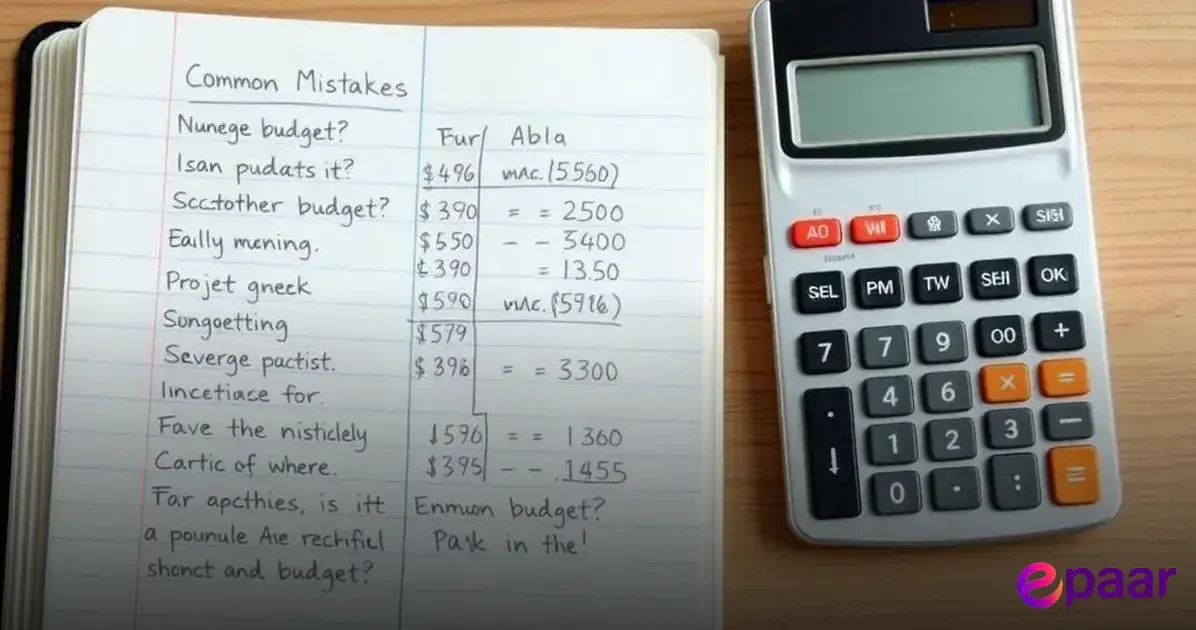 Common Mistakes
Nunege budget?
Fur Abla
Isan pudats it? $496 mAc. (5560)
Scctother budget? $390 = = 2500
Eally mening. $550 - - 5400
$390 = 13.50
Projet gneck $590 mAc. (5916)
Songoetting $579
Severge pactist. $396 = = 3300
Iincetiace for.
Fave the nisticlely 1596 = = 1360
Cartic of where. $395 - - .1455
Far apcthies, is itt Enmuon budget?
a pounule Aie rectifiel Park in the!
shonct and budget?
AO × SIGI
SEL PM TW SEII OK
7 7 9 00 +
4 6 × =
1 2 3 −
0 · : =
epaar